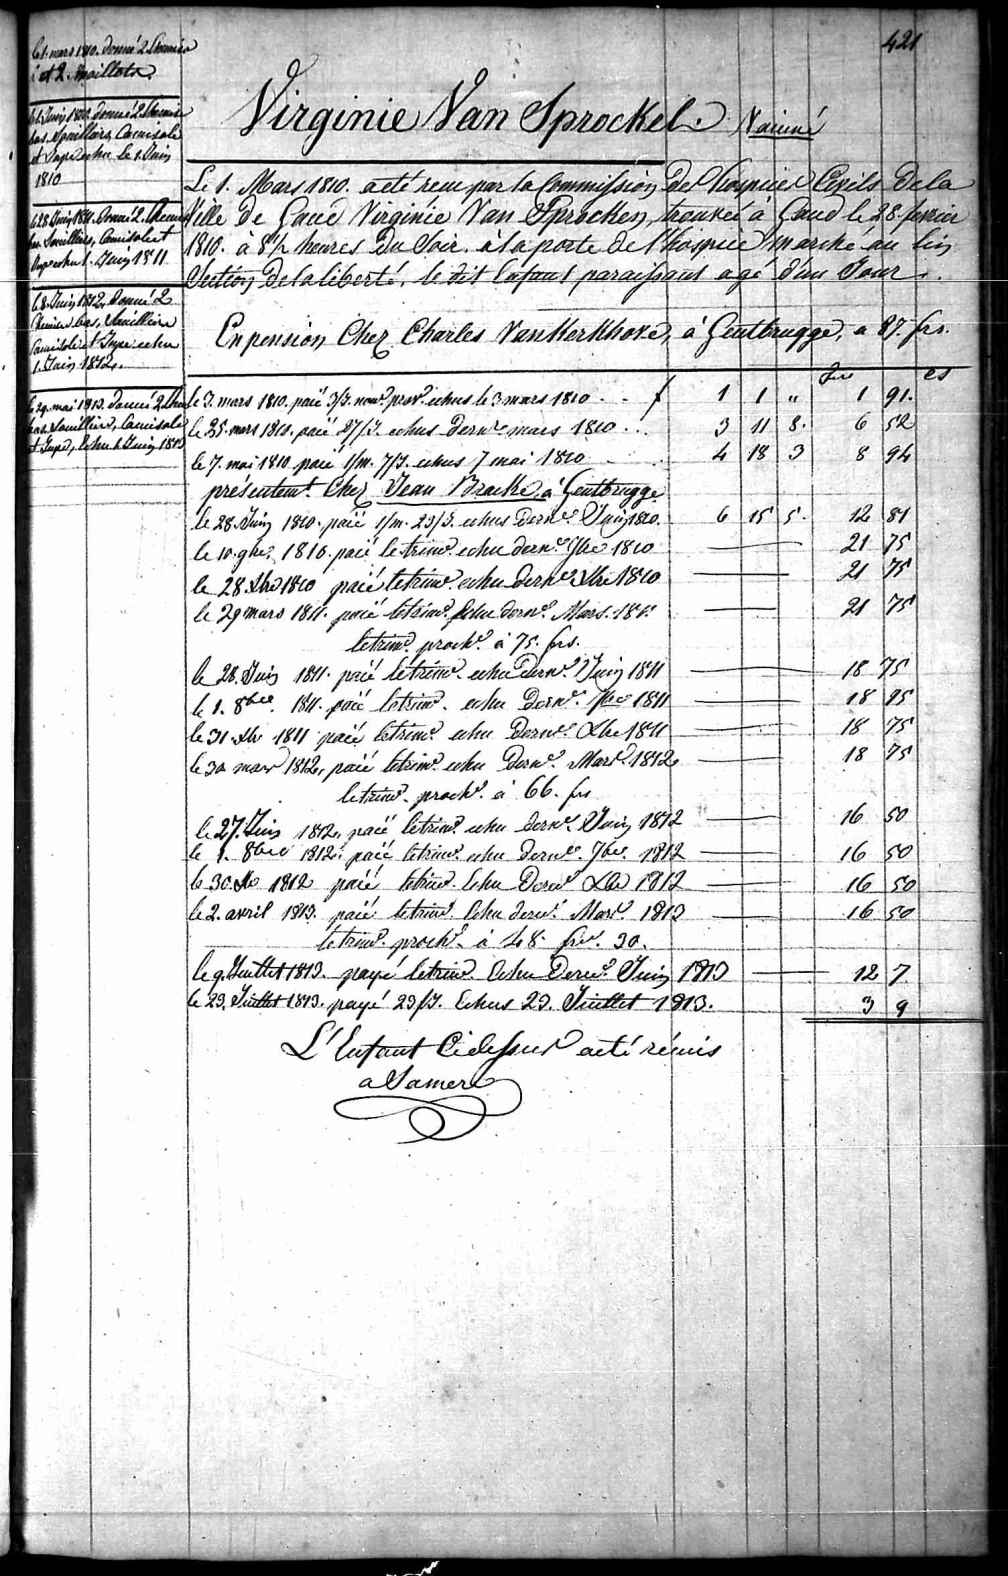 421
le 1. mars 1810. donné 2 Chemise
et 2. Maillots.
donné 2 Chemise
bas, Souilliers, Camisole
et Jupe echu le 1. Juin
1810
le 28 Juin 1811. Donné 2. Chemise
bas Souilliers, Camisole et
Jupe echu 1. Juin 1811
le 8. Juin 1812, Donné 2
Chemise bas, Souilliers
Camisole et Jupe echu
1. Juin 1812.
le 29. mai 1813. donné 2 Chem
bas. Souilliers, Camisole
et Jupe, echu 1. Juin 1813
Virginie Van Sprockel. Vaciné
Le 1. Mars 1810. a eté recu par la Commission des hospices Civils de la
Ville de Gand Virginie Van Sprocken, trouvée à Gand le 28. fevrier
1810. a 8½ heures du Soir. à la porte de l'hospice marché au lin
Section de la liberté, le dit Enfant paraissant agé d'un Jour.
En pension Chez Charles VanKerkhove, à Gentbrugge, a 87. frs.
frs cs
le 3. mars 1810. paié 3/J. nour. prov. echus le 3 mars 1810 . . f 1 1 " 1 91.
le 25. mars 1810. paié 27/J. echus dernr. mars 1810 . . . 3 11 8. 6 52
le 7. mai 1810 paié 1/m. 7/J. echus 7 mai 1810 . . 4 18 3 8 94
présentemt. Chez Jean Bracke, à Gentbrugge
le 28. Juin 1810. paié 1/m. 23/J. echus Dernr. Juin 1810. 6 15 5. 12 81
le 10. 9bre. 1810. paié le trimr. echu dernr. 7bre 1810 — 21 75
le 28. Xbre 1810 paié le trimr. echu dernr. Xbre 1810 — 21 75
le 29 mars 1811. paié le trimr. Echu dernr. Mars. 181. — 21 75
le trimr. prochr. à 75. frs.
le 28. Juin 1811. paié le trimr. echu dernr. Juin 1811 — 18 75
le 1. 8bre. 1811. paié le trimr. echu Dernr. 7bre 1811 — 18 75
le 31 Xbre 1811 paié, le trimr. echu Dernr. Xbre 1811 — 18 75
le 30 mars 1812, paié le trimr. echu Dernr. Mars 1812 — 18 75
le trimr. prochr. à 66. frs
le 27. Juin 1812, paié le trimr. echu dernr. Juin 1812 — 16 50
le 1. 8bre 1812. paié le trimr. echu dernr. 7bre. 1812 — 16 50
le 30. Xbre 1812 paié le trimr. Echu Dernr. Xbre 1812 — 16 50
le 2. avril 1813. paié le trimr. Echu dernr. Mars. 1813 — 16 50
le trimr. prochr. à 48. frs. 30.
le 9. Juillet 1813. payé le trimr. Echu Dernr. Juin 1813 — 12 7
le 23. Juillet 1813. payé 23/J. Echus 23. Juillet 1813. 3 9
L'Enfant Cidessus a eté rémis
a Sa mere